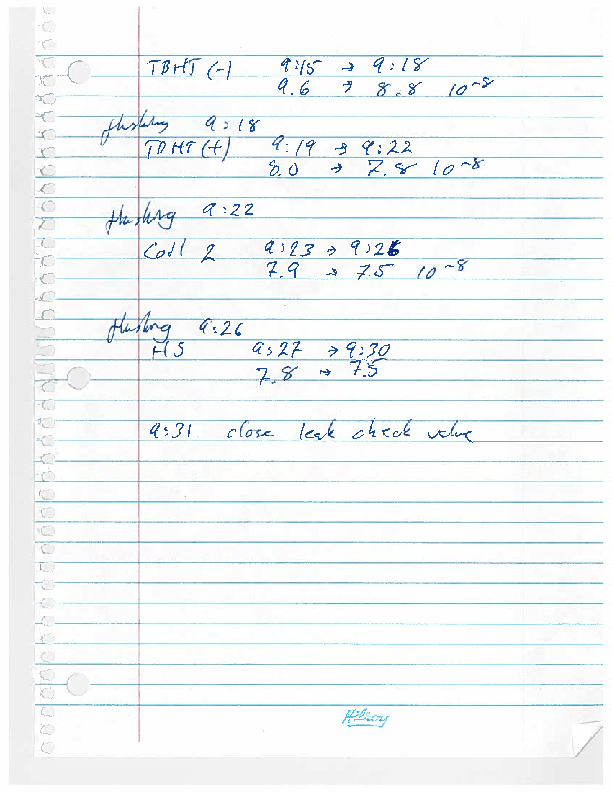 TBHT (-) 9:15 → 9:18
9.6 → 8.8 10^-8
flushing 9:18
TBHT (+) 9:19 → 9:22
8.0 → 7.8 10^-8
flushing 9:22
Coil 2 9:23 → 9:26
7.9 → 7.5 10^-8
flushing 9:26
HS 9:27 → 9:30
7.8 → 7.5
9:31 close leak check valve
Hilroy